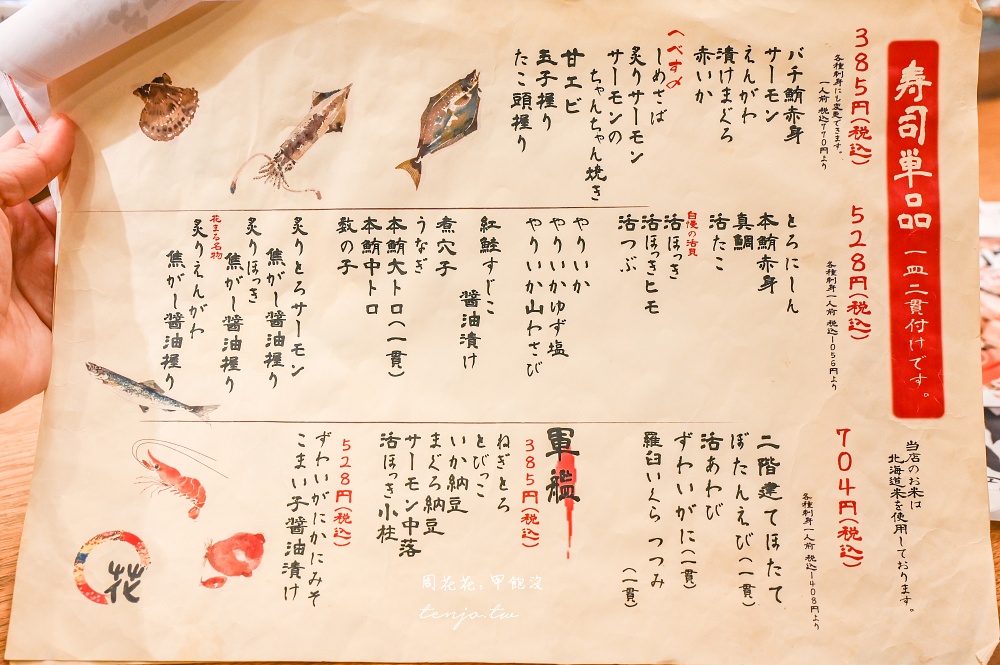 寿司単品 一皿二貫付けです。
385円(税込)
各種刺身にも変更できます。
一人前 税込770円より
バチ鮪赤身
サーモン
えんがわ
漬けまぐろ
赤いか
へべす〆
しめさば
炙りサーモン
サーモンの
ちゃんちゃん焼き
甘エビ
玉子握り
たこ頭握り
528円(税込)
各種刺身一人前 税込1056円より
とろにしん
本鮪赤身
真鯛
活たこ
自慢の活貝
活ほっき
活ほっきヒモ
活つぶ
やりいか
やりいかゆず塩
やりいか山わさび
紅鮭すじこ
醤油漬け
煮穴子
うなぎ
本鮪大トロ(一貫)
本鮪中トロ
数の子
炙りとろサーモン
焦がし醤油握り
炙りほっき
焦がし醤油握り
花まる名物
炙りえんがわ
焦がし醤油握り
当店のお米は
北海道米を使用しております。
704円(税込)
各種刺身一人前 税込1408円より
二階建てほたて
ぼたんえび(一貫)
活あわび
ずわいがに(一貫)
羅臼いくらつつみ
(一貫)
軍艦
385円(税込)
ねぎとろ
とびっこ
いか納豆
まぐろ納豆
サーモン中落
活ほっき小柱
528円(税込)
ずわいがにかにみそ
こまい子醤油漬け
花
周花花,甲飽沒
tenjo.tw